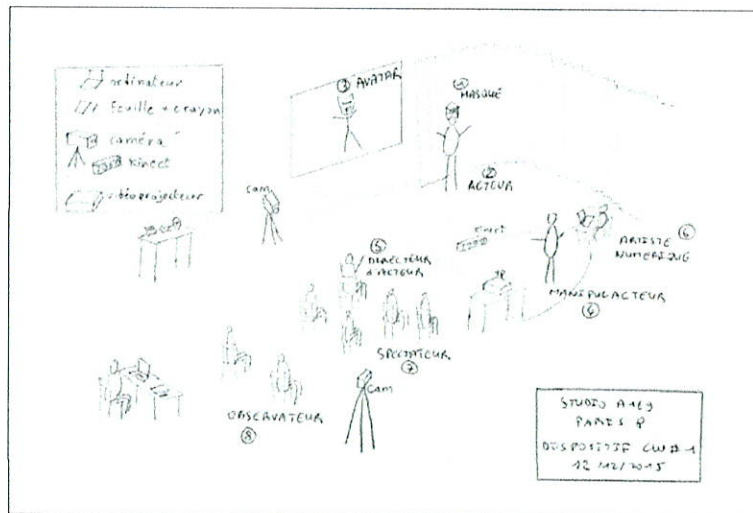 ordinateur
feuille + crayon
caméra
Kinect
vidéoprojecteur
③ AVATAR
①
MASQUE
②
ACTEUR
cam
kinect
⑥
ARTISTE
NUMERIQUE
⑤
DIRECTEUR
d'ACTEUR
MANIPULACTEUR
④
SPECTATEUR
⑦
cam
OBSERVATEUR
⑧
STUDIO A169
PARIS 8
DISPOSITIF CW#1
12/12/2015